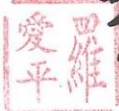 羅
愛平